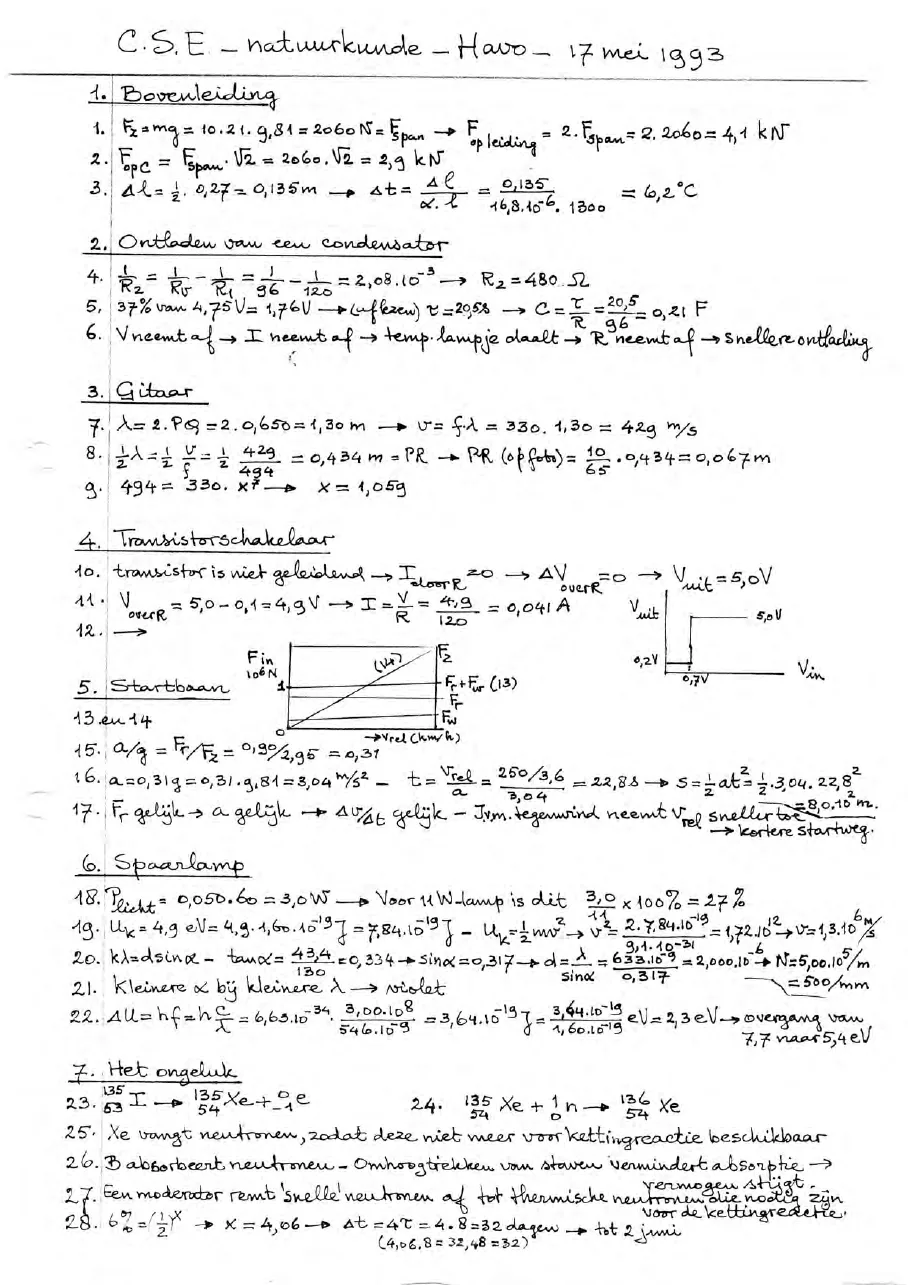 C.S.E - natuurkunde - Havo - 17 mei 1993
1. Bovenleiding
1. Fz=mg = 10.21.9,81=2060 N = Fspan → Fop leiding = 2.Fspan = 2.2060 = 4,1 kN
2. FopC = Fspan.√2 = 2060.√2 = 2,9 kN
3. Δl = ½. 0,27 = 0,135 m → Δt = Δl/α.l = 0,135/16,8.10⁻⁶. 1300 = 6,2°C
2. Ontladen van een condensator
4. 1/R₂ = 1/Rv - 1/R₁ = 1/96 - 1/120 = 2,08.10⁻³ → R₂ = 480 Ω
5. 37% van 4,75V = 1,76V → (aflezen) τ = 20,5s → C = τ/R = 20,5/96 = 0,21 F
6. V neemt af → I neemt af → temp. lampje daalt → R neemt af → snellere ontlading
3. Gitaar
7. λ = 2.PQ = 2.0,650 = 1,30 m → v = f.λ = 330. 1,30 = 429 m/s
8. ½λ = ½ v/f = ½ 429/494 = 0,434 m = PR → PR (op foto) = 10/65 .0,434 = 0,067 m
9. 494 = 330. x⁷ → x = 1,059
4. Transistorschakelaar
10. transistor is niet geleidend → Idoor R = 0 → ΔVover R = 0 → Vuit = 5,0V
11. Vover R = 5,0 - 0,1 = 4,9V → I = V/R = 4,9/120 = 0,041 A
12. →
Vuit
5,0V
0,2V
0,7V
Vin
5. Startbaan
F in 10⁶N
1
0
(14)
Fz
Fr+Fw (13)
Fr
Fw
→ Vrel (km/h)
13 en 14
15. a/g = Fr/Fz = 0,90/2,95 = 0,31
16. a = 0,31g = 0,31.9,81 = 3,04 m/s² - t = Vrel/a = 250/3,6/3,04 = 22,8s → s = ½at² = ½.3,04.22,8²
= 8,0.10² m.
17. Fr gelijk → a gelijk → Δv/Δt gelijk - I.v.m. tegenwind neemt Vrel sneller toe
→ kortere startweg.
6. Spaarlamp
18. Plicht = 0,050.60 = 3,0W → Voor 11W-lamp is dit 3,0/11 x 100% = 27%
19. Uk = 4,9 eV = 4,9.1,60.10⁻¹⁹J = 7,84.10⁻¹⁹J - Uk = ½mv² → v² = 2.7,84.10⁻¹⁹/9,1.10⁻³¹ = 1,72.10¹² → v = 1,3.10⁶ m/s
20. kλ = dsinα - tanα = 43,4/130 = 0,334 → sinα = 0,317 → d = λ/sinα = 633.10⁻⁹/0,317 = 2,000.10⁻⁶ → N = 5,00.10⁵/m
= 500/mm
21. Kleinere α bij kleinere λ → violet
22. ΔU = hf = h c/λ = 6,63.10⁻³⁴. 3,00.10⁸/546.10⁻⁹ = 3,64.10⁻¹⁹J = 3,64.10⁻¹⁹/1,60.10⁻¹⁹ eV = 2,3 eV → overgang van
7,7 naar 5,4 eV
7. Het ongeluk
23. ¹³⁵₅₃I → ¹³⁵₅₄Xe + ⁰₋₁e 24. ¹³⁵₅₄Xe + ¹₀n → ¹³⁶₅₄Xe
25. Xe vangt neutronen, zodat deze niet meer voor kettingreactie beschikbaar
26. B absorbeert neutronen - Omhoogtrekken van staven vermindert absorptie →
vermogen stijgt.
27. Een moderator remt 'snelle' neutronen af tot thermische neutronen die nodig zijn
voor de kettingreactie.
28. 6% = (½)ˣ → x = 4,06 → Δt = 4τ = 4.8 = 32 dagen → tot 2 juni
(4,06.8 = 32,48 = 32)